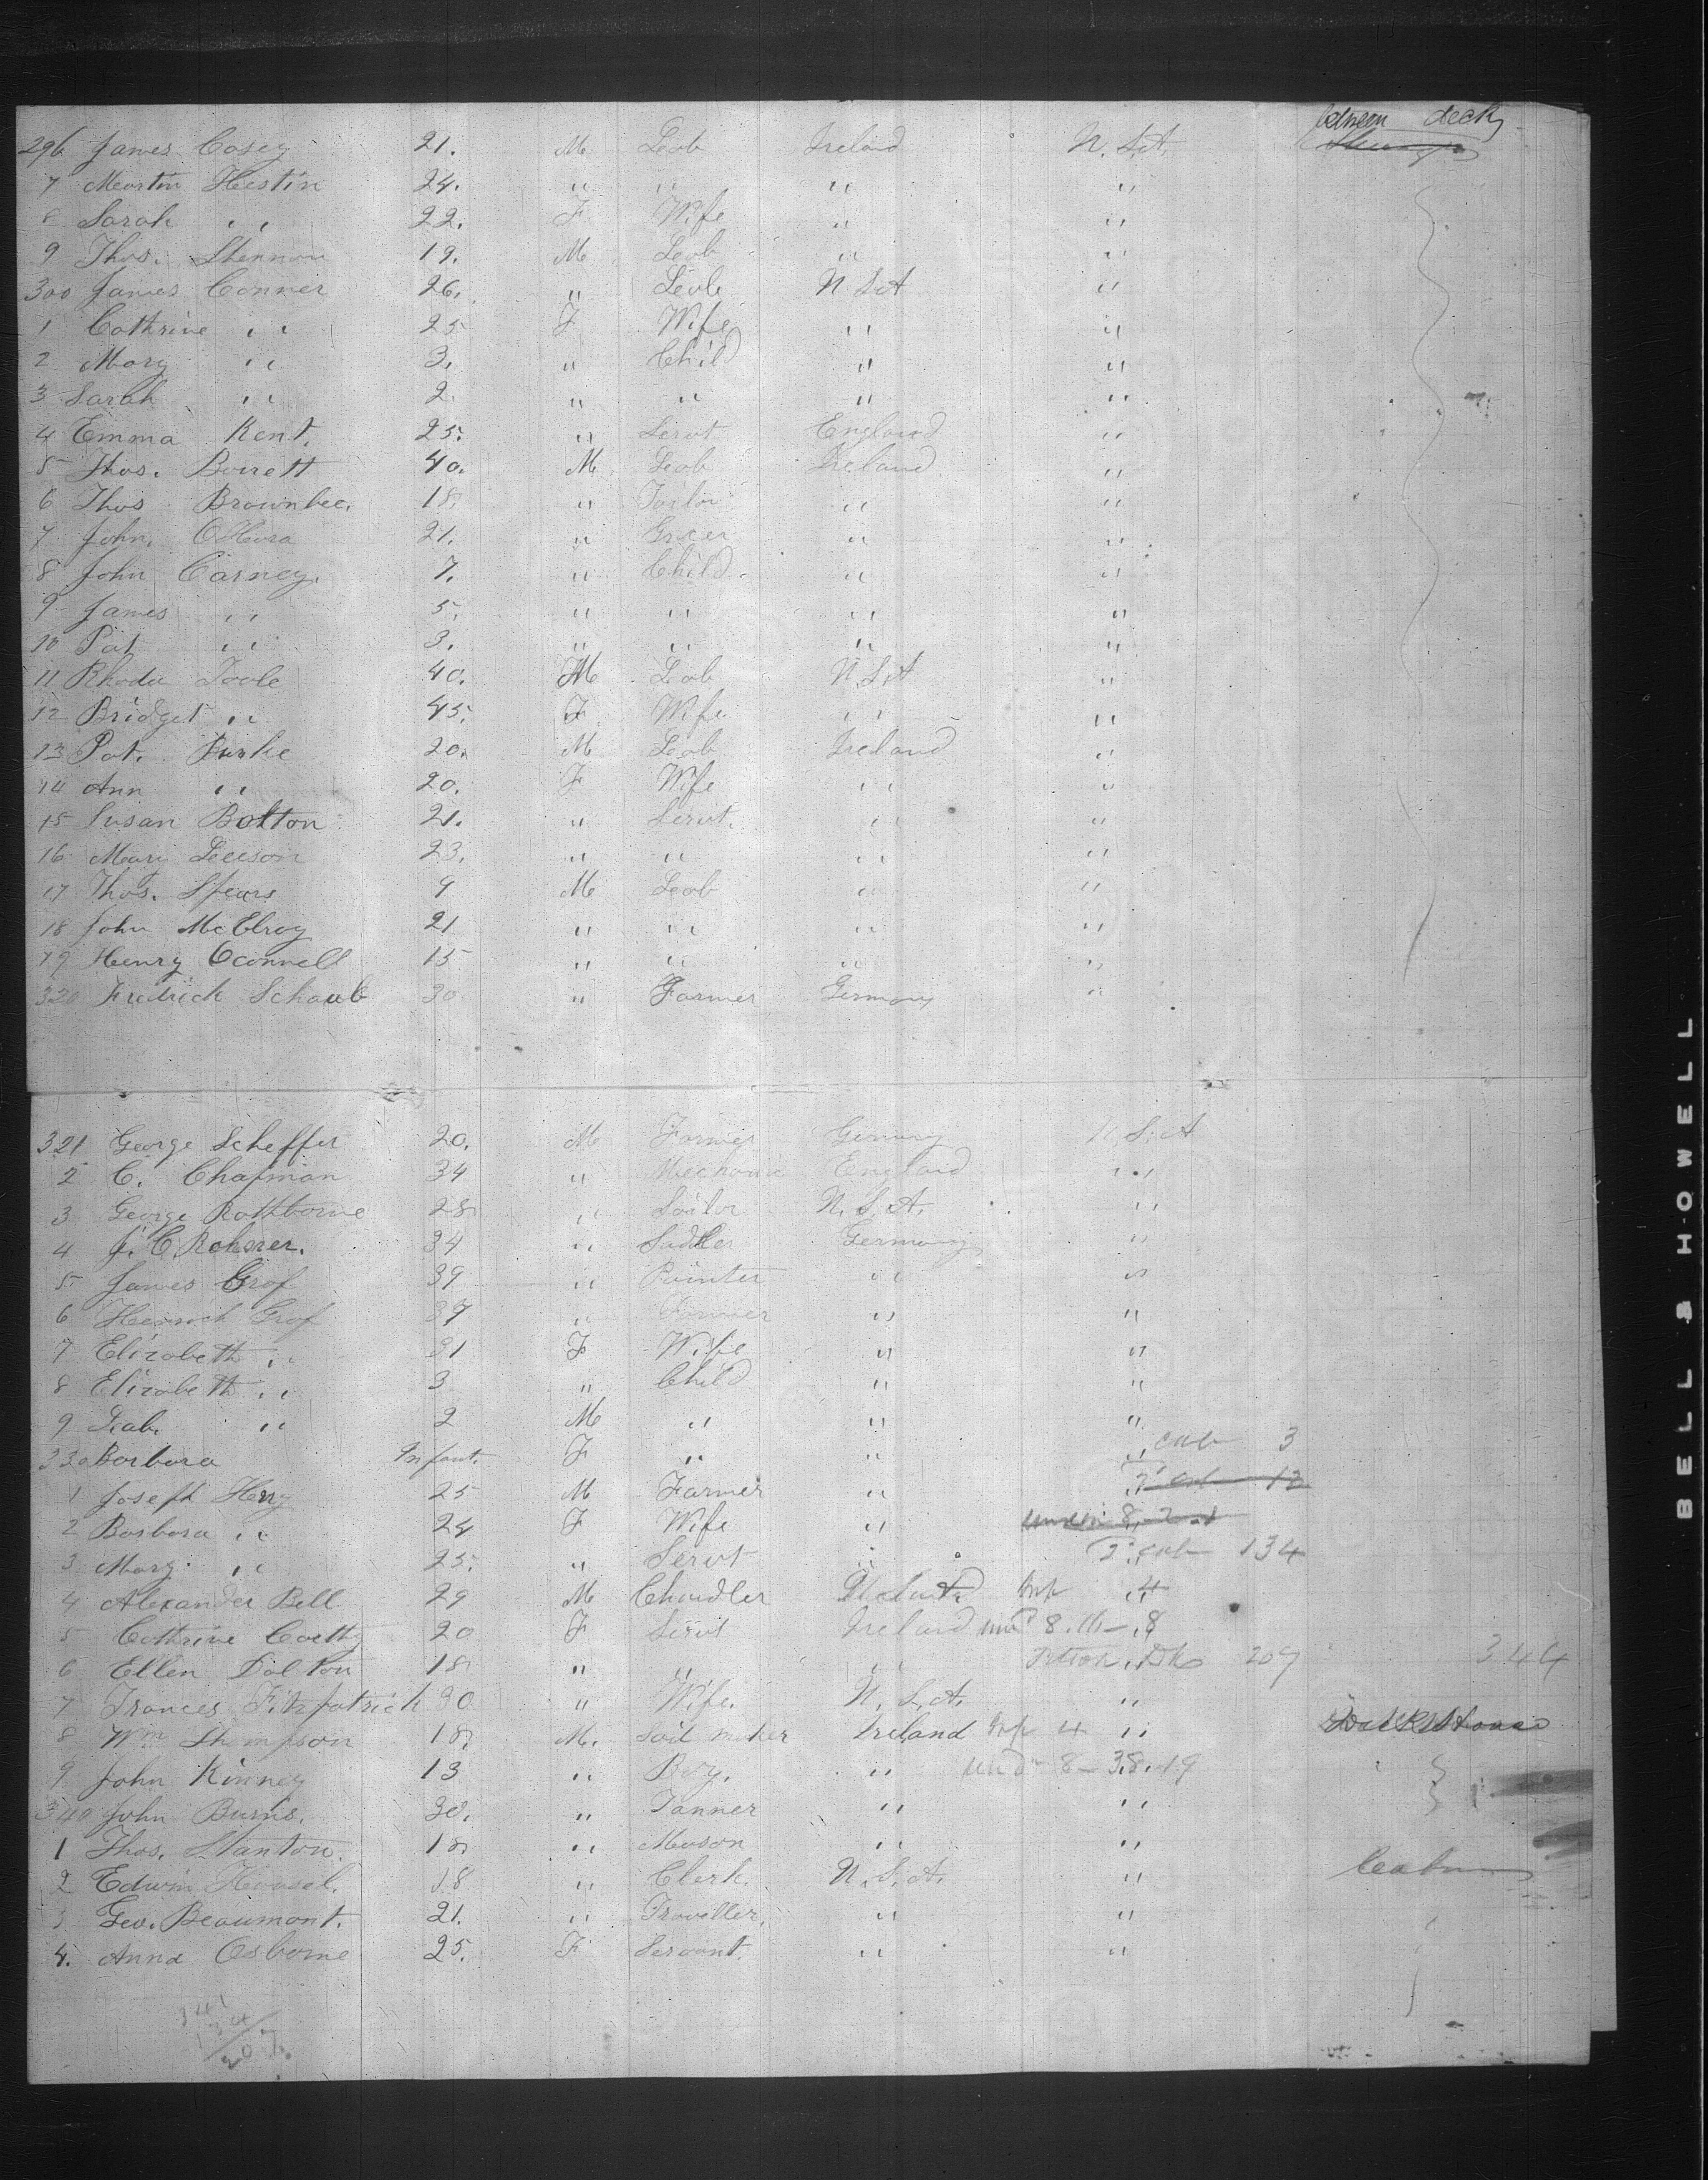 between decks
296 James Casey 21. M Lab Ireland U.S.A.
7 Martin Hestin 24. " " " "
8 Sarah " 22. F Wife " "
9 Thos. Shennon 19. M Lab " "
300 James Conner 26. " Lab U S A "
1 Cathrine " 25 F Wife " "
2 Mary " 3. " Child " "
3 Sarah " 2. " " " "
4 Emma Kent. 25. " Servt England "
5 Thos. Barrett 40. M Lab Ireland "
6 Thos Brownlee. 18. " Tailor " "
7 John. OHara 21. " Grocer " "
8 John Carney. 7. " Child. " "
9 James " 5. " " " "
10 Pat " 3. " " " "
11 Rhoda Toole 40. M Lab U.S.A "
12 Bridget " 45. F Wife " "
13 Pat. Burke 20. M Lab Ireland "
14 Ann " 20. F Wife " "
15 Susan Bolton 21. " Servt. " "
16 Mary Leeson 23. " " " "
17 Thos. Spears 9 M Lab " "
18 John McElroy 21 " " " "
19 Henry Oconnell 15 " " " "
320 Fredrich Schaub 30 " Farmer Germany "
321 George Scheffer 20. M Farmer Germany U.S.A
2 C. Chapman 34 " Mechanic England "
3 George Rathborne 28 " Sailor U.S.A. "
4 J. C Roherer. 34 " Sadler Germany "
5 James Graf 39 " Painter " "
6 Graf 37 " Farmer " "
7 Elizabeth " 31 F Wife " "
8 Elizabeth " 3 " Child " "
9 " 2 M " " "
330 Barbara Infant. F " " " cab 3
1 Joseph Henry 25 M Farmer " 2 cab 12
2 Barbara " 24 F Wife " under 8, 2
3 Mary " 25. " Servt " " 2 cab 134
4 Alexander Bell 29 M Chandler U.S.A. Inf 4
5 Cathrine 20 F Servt Ireland und 8. 16 - 8
6 Ellen Dalton 18 " " " Dk 207 344
7 Frances Fitzpatrick 30 " Wife. U.S.A. "
8 Wm Thompson 18 M. Sail maker Ireland Inf 4 "
9 John Kinney 13 " Boy. " und 8 - 38. 19
340 John Burns. 30. " Tanner " "
1 Thos. Stanton. 18 " Mason " "
2 Edwin Housel. 18 " Clerk. U.S.A. " Cabin
3 Geo. Beaumont. 21. " Traveller. " "
4. Anna Osborne 25. F Servant. " "
341
134
207.
BELL & HOWELL